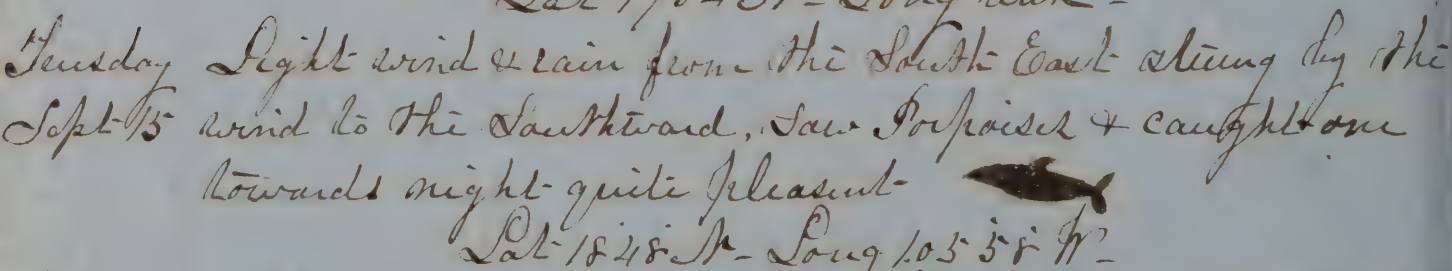 Teusday Light wind & rain from the South East steeng by the
Sept 15 wind to the Southward, Saw Porpoises & caught one
towards night quite pleasent
Lat 18 48 N - Long 105 58 W -